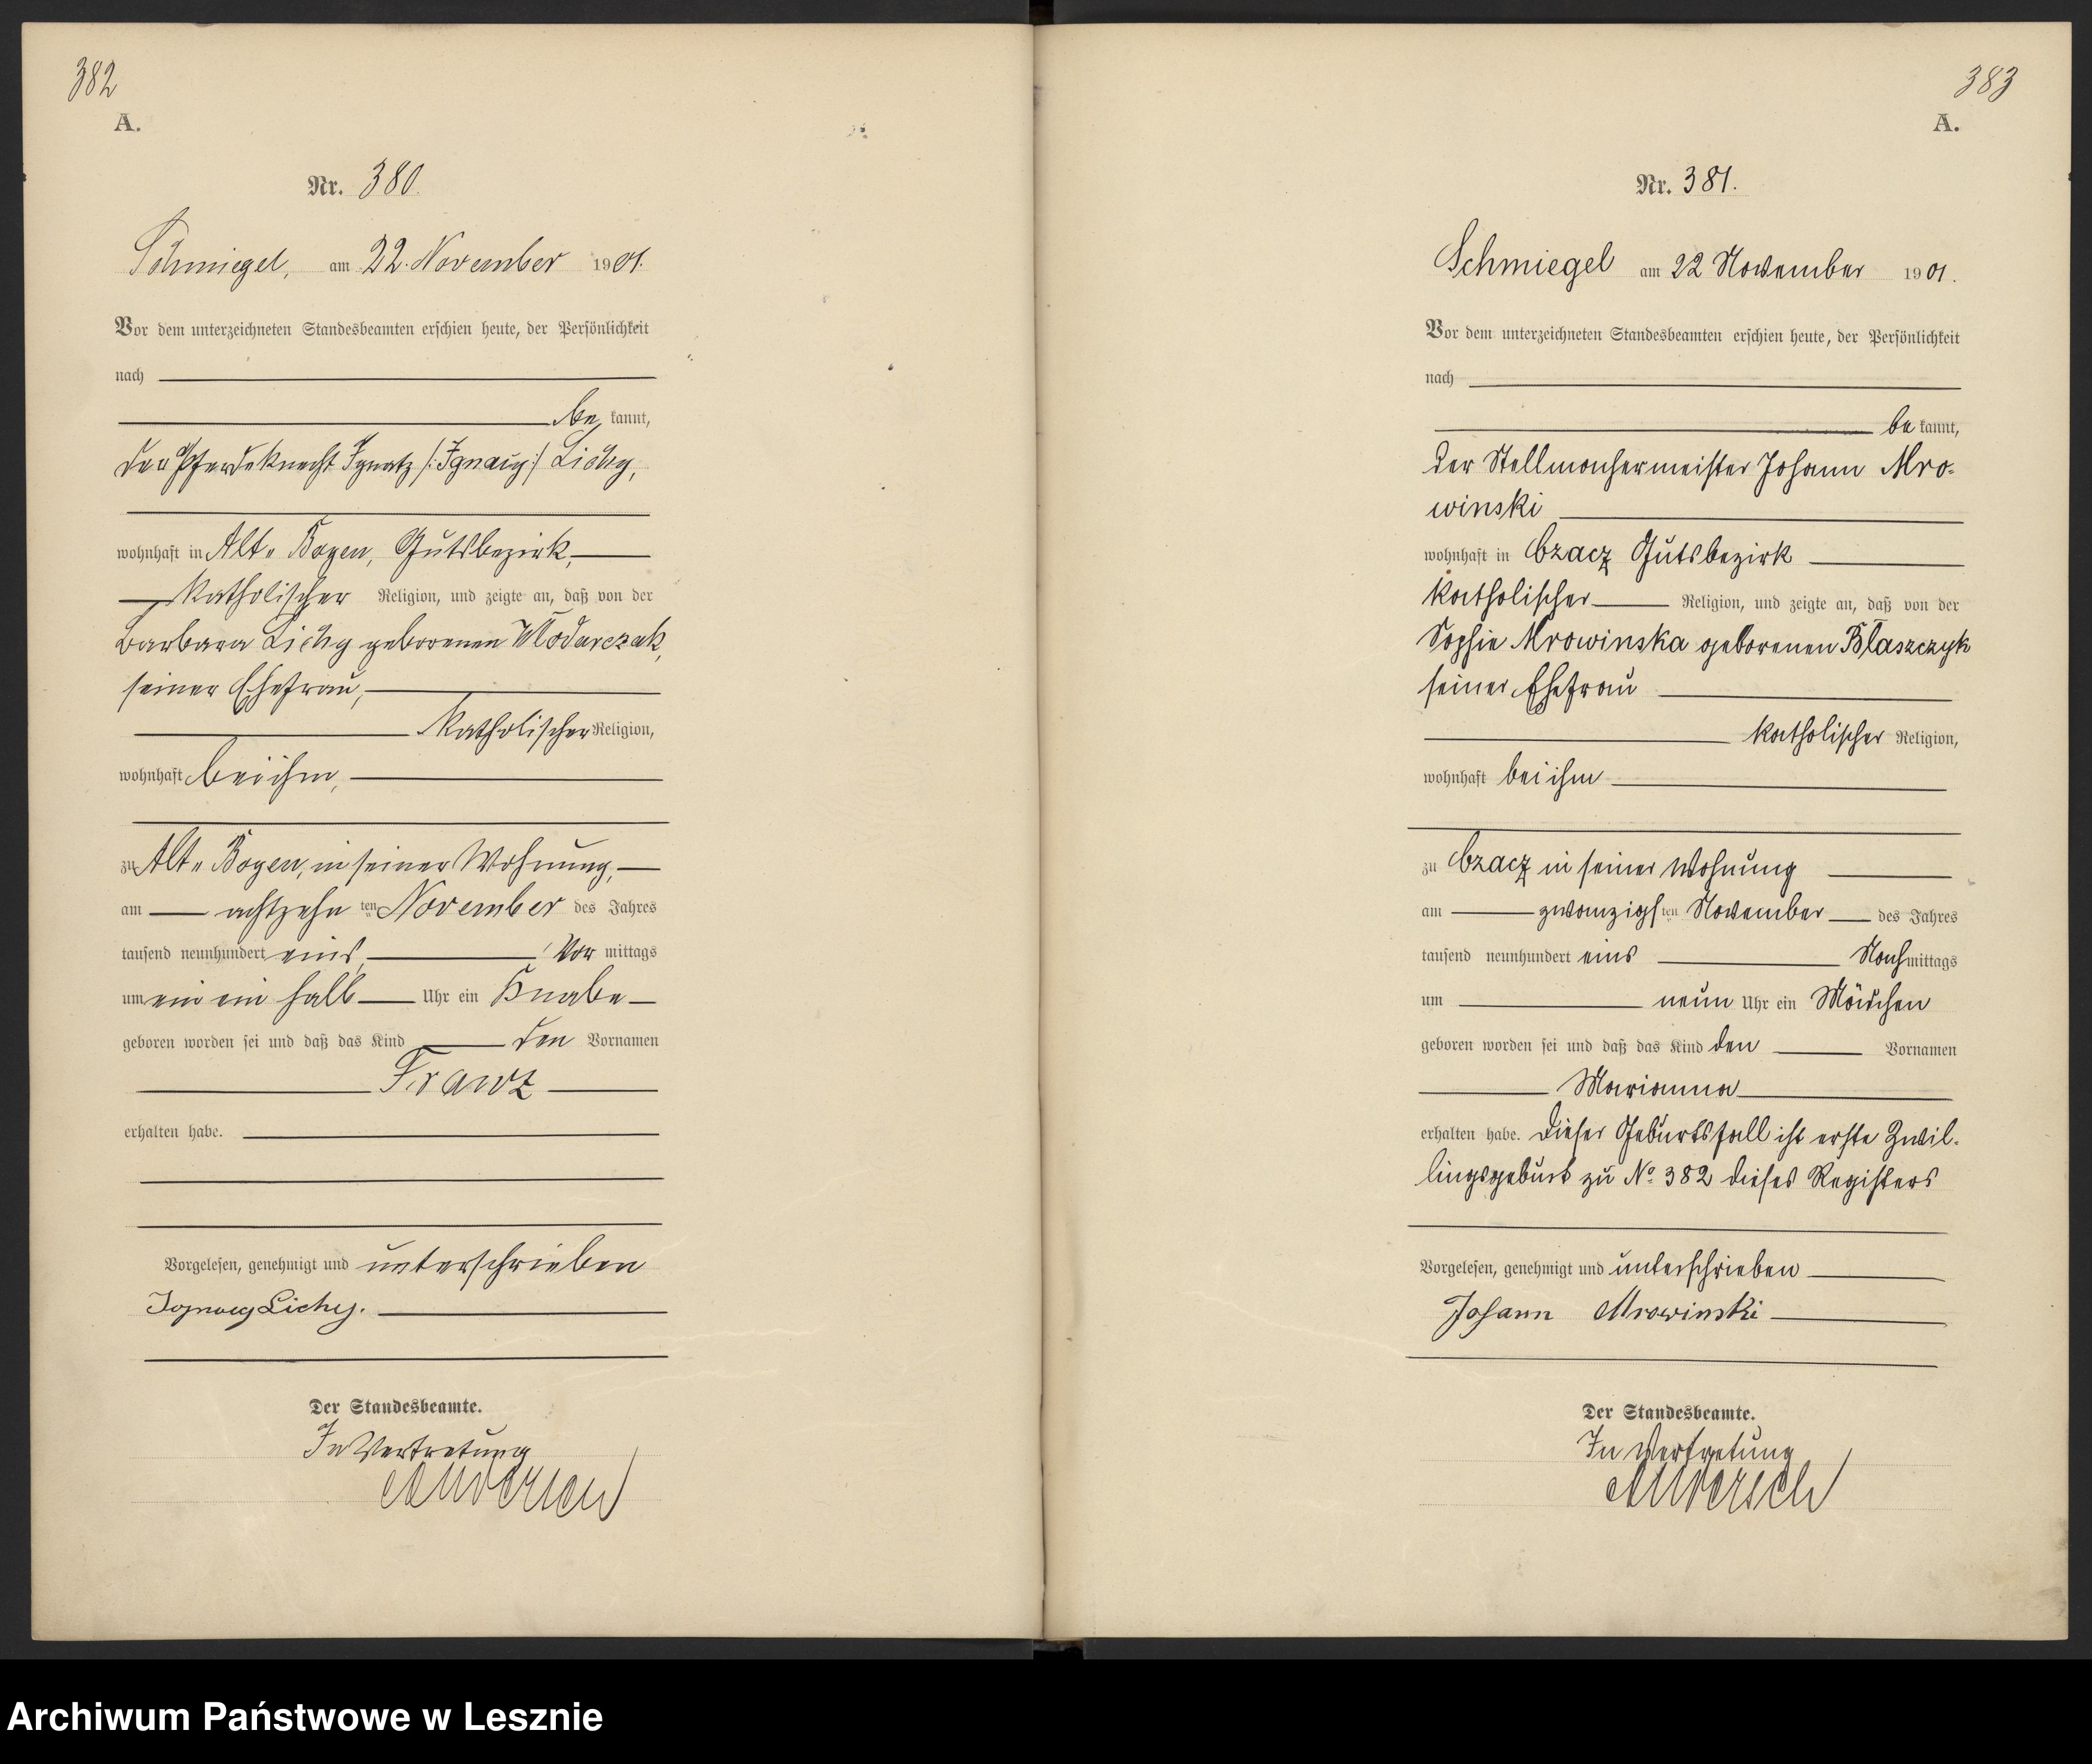 382
A.
Nr. 380.
Schmiegel, am 22. November 1901.
Vor dem unterzeichneten Standesbeamten erschien heute, der Persönlichkeit
nach
be kannt,
der Pferdeknecht Ignatz /:Ignacy:/ Lichy,
wohnhaft in Alt-Boyen, Gutsbezirk,
katholischer Religion, und zeigte an, daß von der
Barbara Lichy geborenen Wlodarczak,
seiner Ehefrau,
katholischer Religion,
wohnhaft bei ihm,
zu Alt-Boyen, in seiner Wohnung,
am achtzehn ten November des Jahres
tausend neunhundert eins, Vor mittags
um ein ein halb Uhr ein Knabe
geboren worden sei und daß das Kind den Vornamen
Franz
erhalten habe.
Vorgelesen, genehmigt und unterschrieben
Ignacy Lichy.
Der Standesbeamte.
In Vertretung
383
A.
Nr. 381.
Schmiegel am 22 November 1901.
Vor dem unterzeichneten Standesbeamten erschien heute, der Persönlichkeit
nach
be kannt,
der Stellmachermeister Johann Mro-
winski
wohnhaft in Czacz Gutsbezirk
katholischer Religion, und zeigte an, daß von der
Sophie Mrowinska geborenen Błaszczyk
seiner Ehefrau
katholischer Religion,
wohnhaft bei ihm
zu Czacz in seiner Wohnung
am zwanzigs ten November des Jahres
tausend neunhundert eins Nach mittags
um neun Uhr ein Mädchen
geboren worden sei und daß das Kind den Vornamen
Marianna
erhalten habe. Dieser Geburtsfall ist erste Zwil-
lingsgeburt zu No 382 dieses Registers
Vorgelesen, genehmigt und unterschrieben
Johann Mrowinski
Der Standesbeamte.
In Vertretung
Archiwum Państwowe w Lesznie